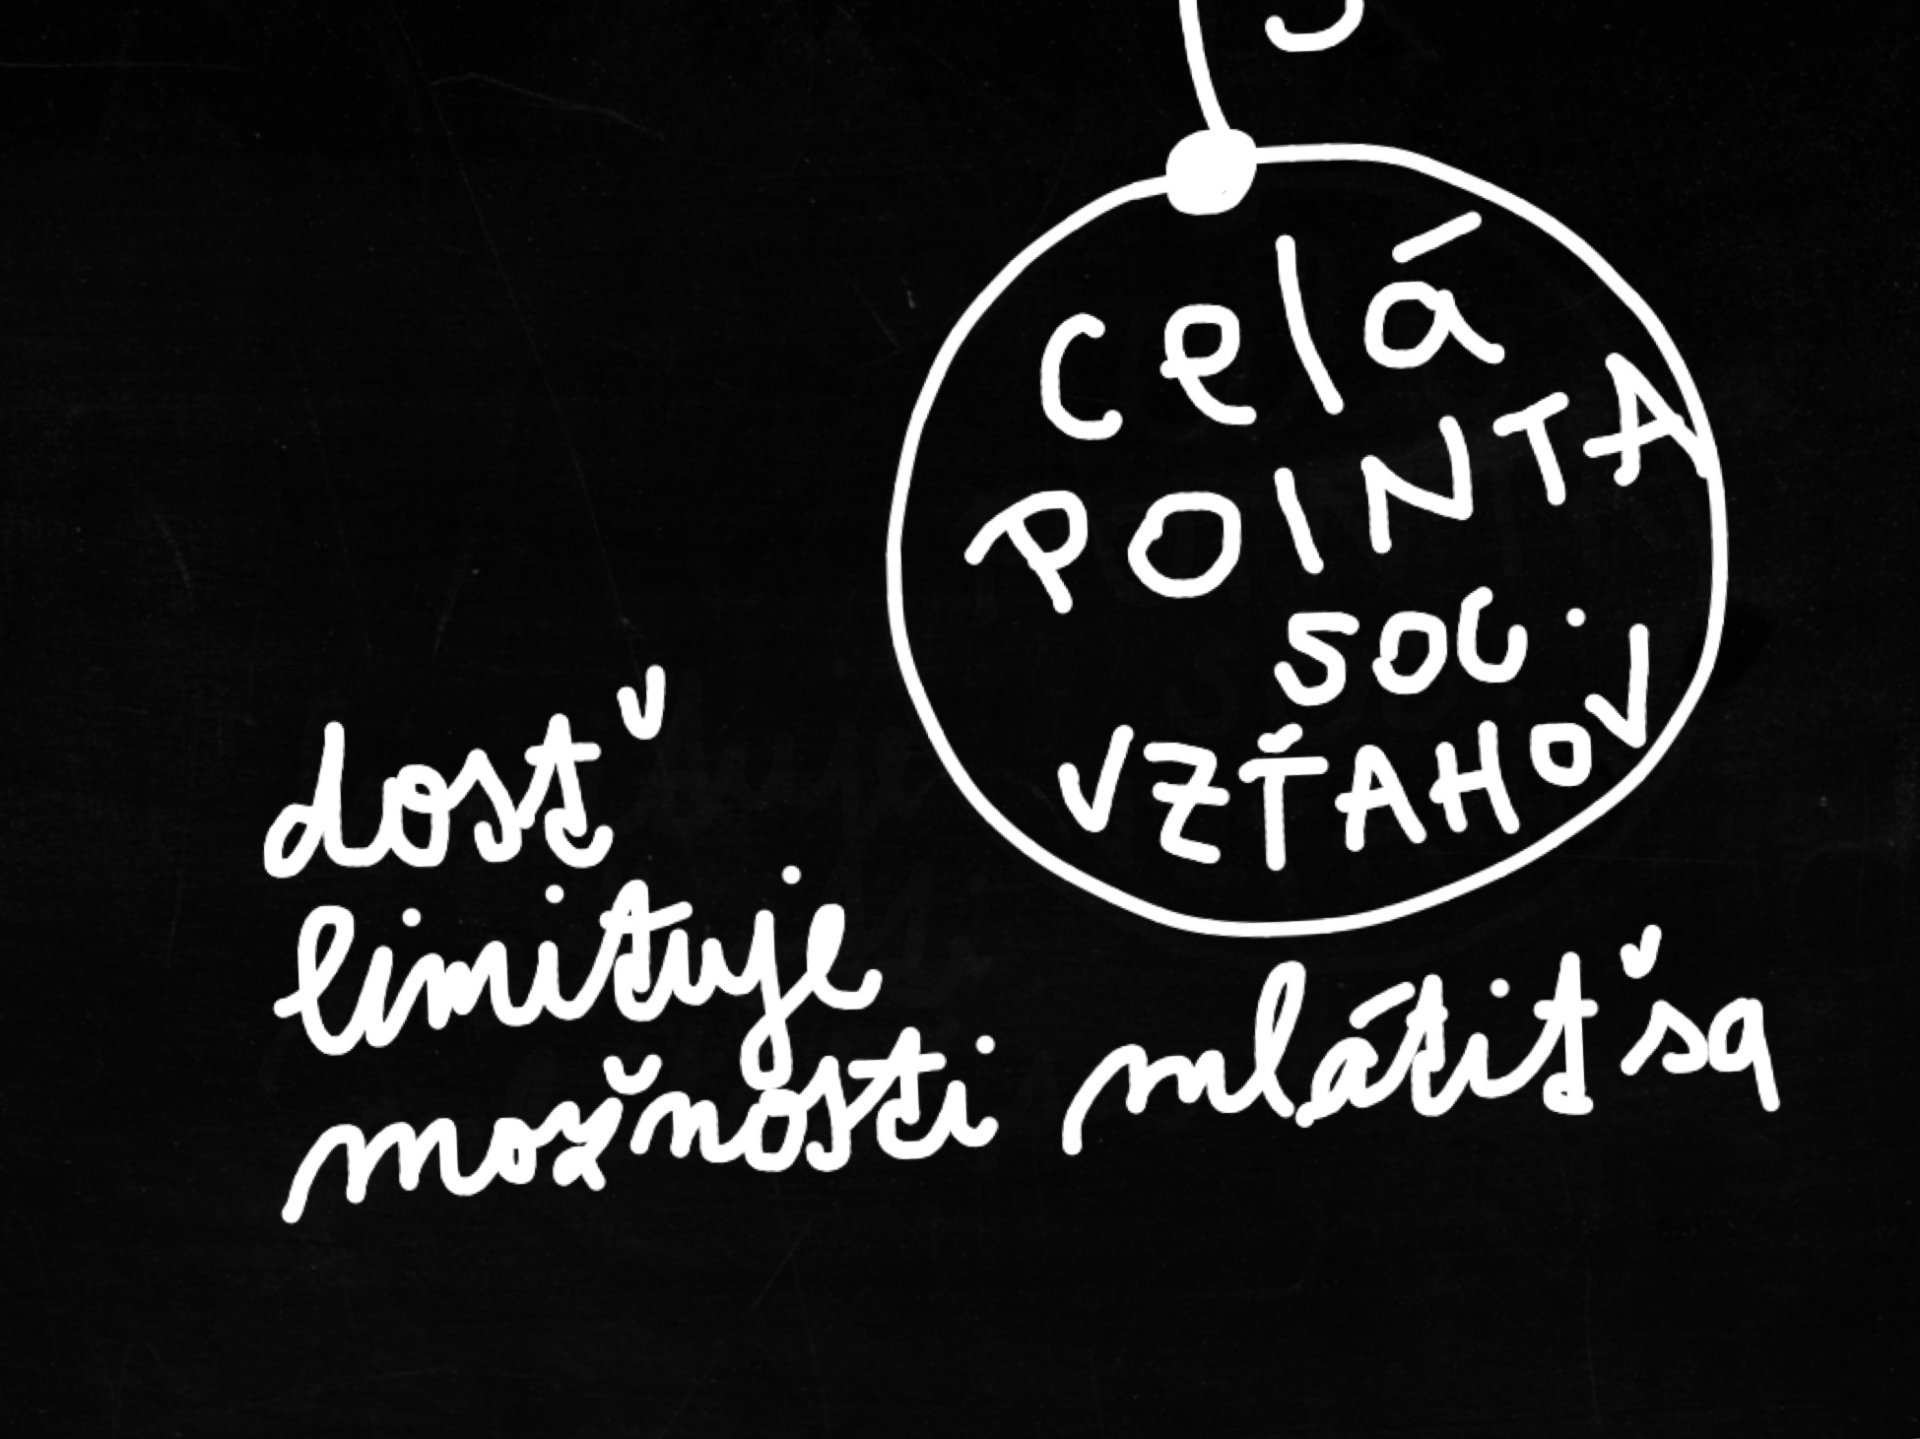 celá
POINTA
SOC.
VZŤAHOV
dosť
limituje
možnosti mlátiť sa